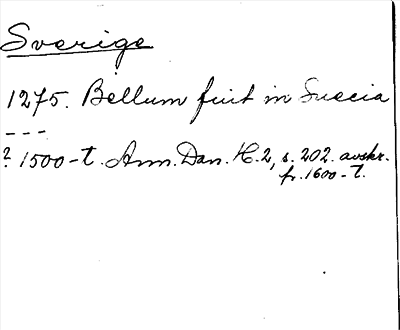 Sverige
1275. Bellum fuit in Suecia
---
? 1500-t. Ann. Dan. K. 2, s. 202. avskr.
fr. 1600-t.